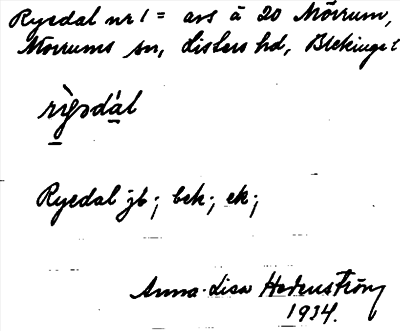 Ryedal nr 1 = avs å 20 Mörrum,
Mörrums sn, Listers hd, Blekinge l
rỳ̱edá̱l
Ryedal jb; bek; ek;
Anna-Lisa Hedenström
1934.